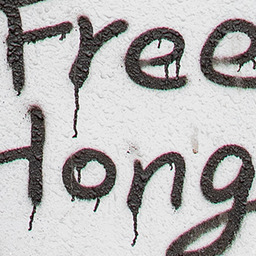 Free
Hong